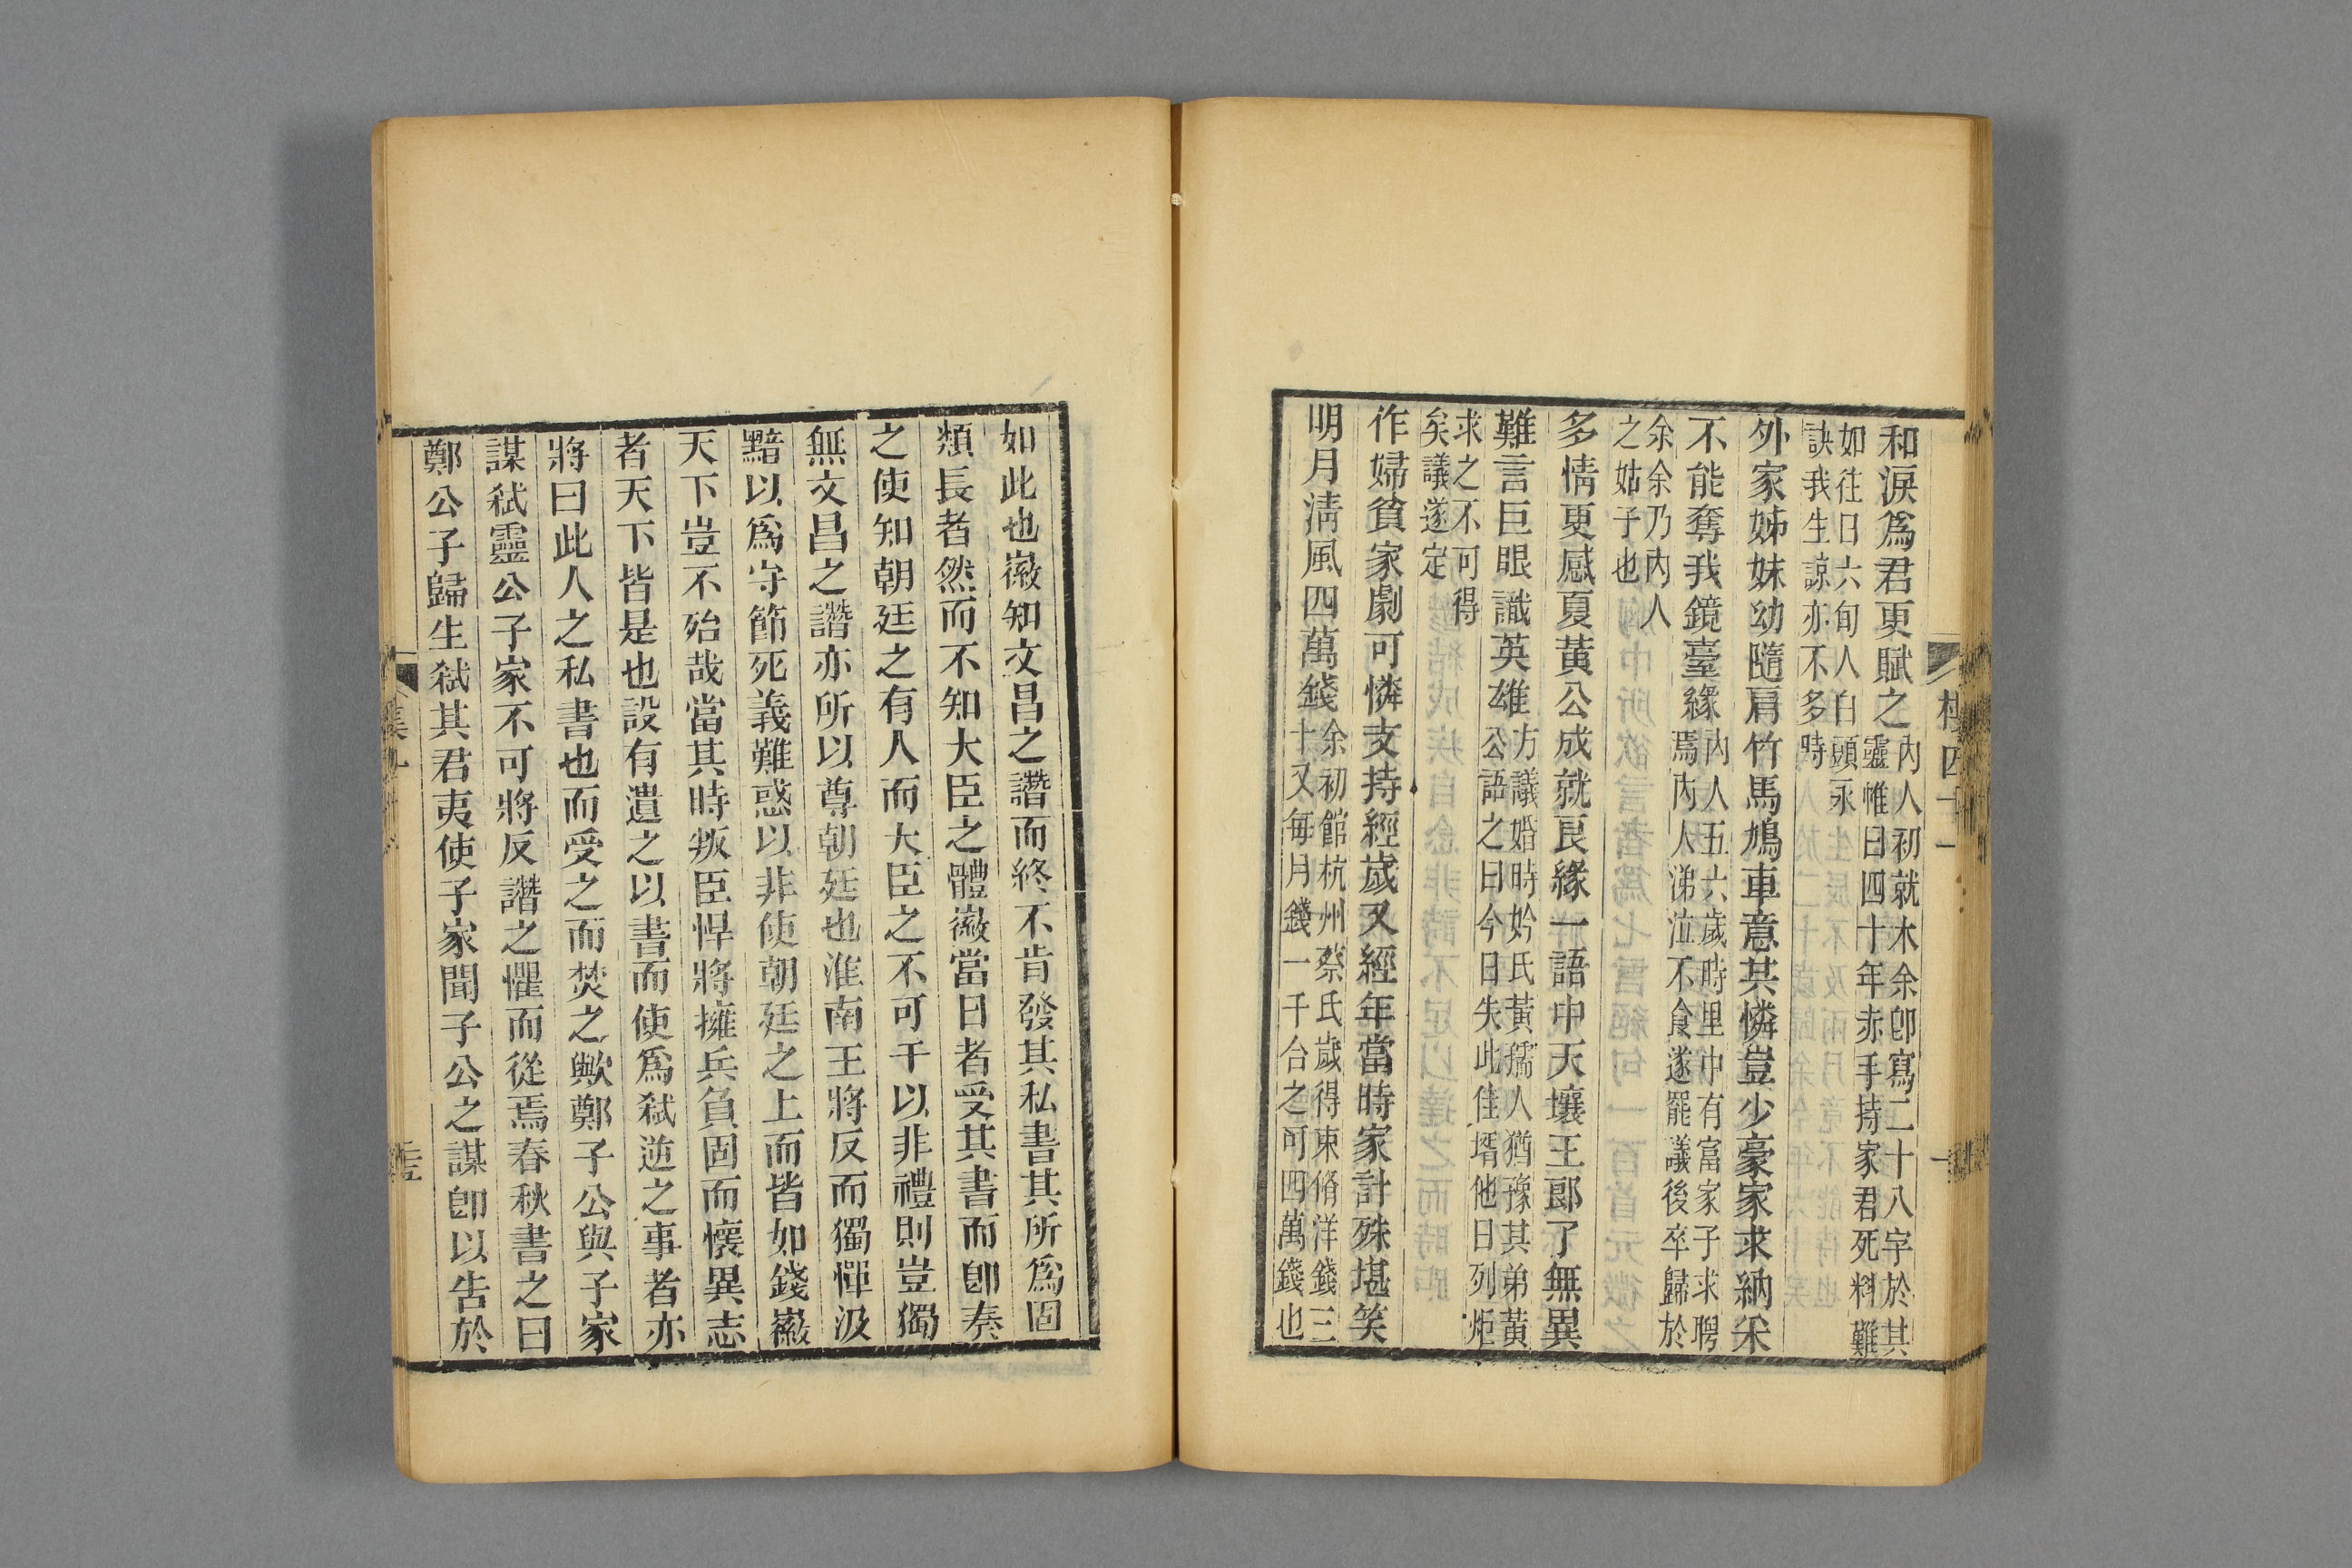 和淚爲君更賦之內人初就木余卽寫二十八字於其靈帷曰四十年赤手持家君死料難
如往日六旬人白頭永訣我生諒亦不多時
外家姊妹幼隨肩竹馬鳩車意共憐豈少豪家求納采
不能奪我鏡臺緣內人五六歲時里中有富家子求聘焉內人涕泣不食遂罷議後卒歸於
余余乃內人之姑子也
多情更感夏黃公成就良緣一語中天壤王郎了無異
難言巨眼識英雄方議婚時妗氏黃孺人猶豫其弟黃公語之曰今日失此佳壻他日列炬
求之不可得矣議遂定
作婦貧家劇可憐支持經歲又經年當時家計殊堪笑
明月淸風四萬錢余初館杭州蔡氏歲得束脩洋錢三十又每月錢一千合之可四萬錢也
如此也徽知文昌之譖而終不肯發其私書其所爲固
類長者然而不知大臣之體徽當日者受其書而卽奏
之使知朝廷之有人而大臣之不可干以非禮則豈獨
無文昌之譖亦所以尊朝廷也淮南王將反而獨憚汲
黯以爲守節死義難惑以非使朝廷之上而皆如錢徽
天下豈不殆哉當其時叛臣悍將擁兵負固而懷異志
者天下皆是也設有遺之以書而使爲弑逆之事者亦
將曰此人之私書也而受之而焚之歟鄭子公與子家
謀弑靈公子家不可將反譖之懼而從焉春秋書之曰
鄭公子歸生弑其君夷使子家聞子公之謀卽以告於